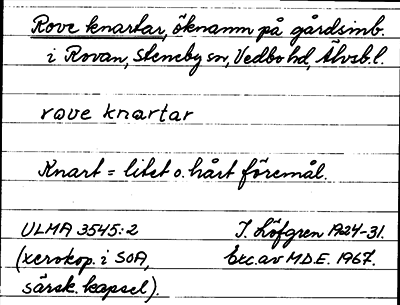 Rove knartar, öknamn på gårdsinb.
i Rovan, Steneby sn, Vedbo hd, Älvsb.l.
rove knartar
Knart = litet o. hårt föremål.
ULMA 3545:2 J. Löfgren 1924-31.
(xerokop. i SOA, Exc. av M.D.E. 1967.
särsk. kapsel).